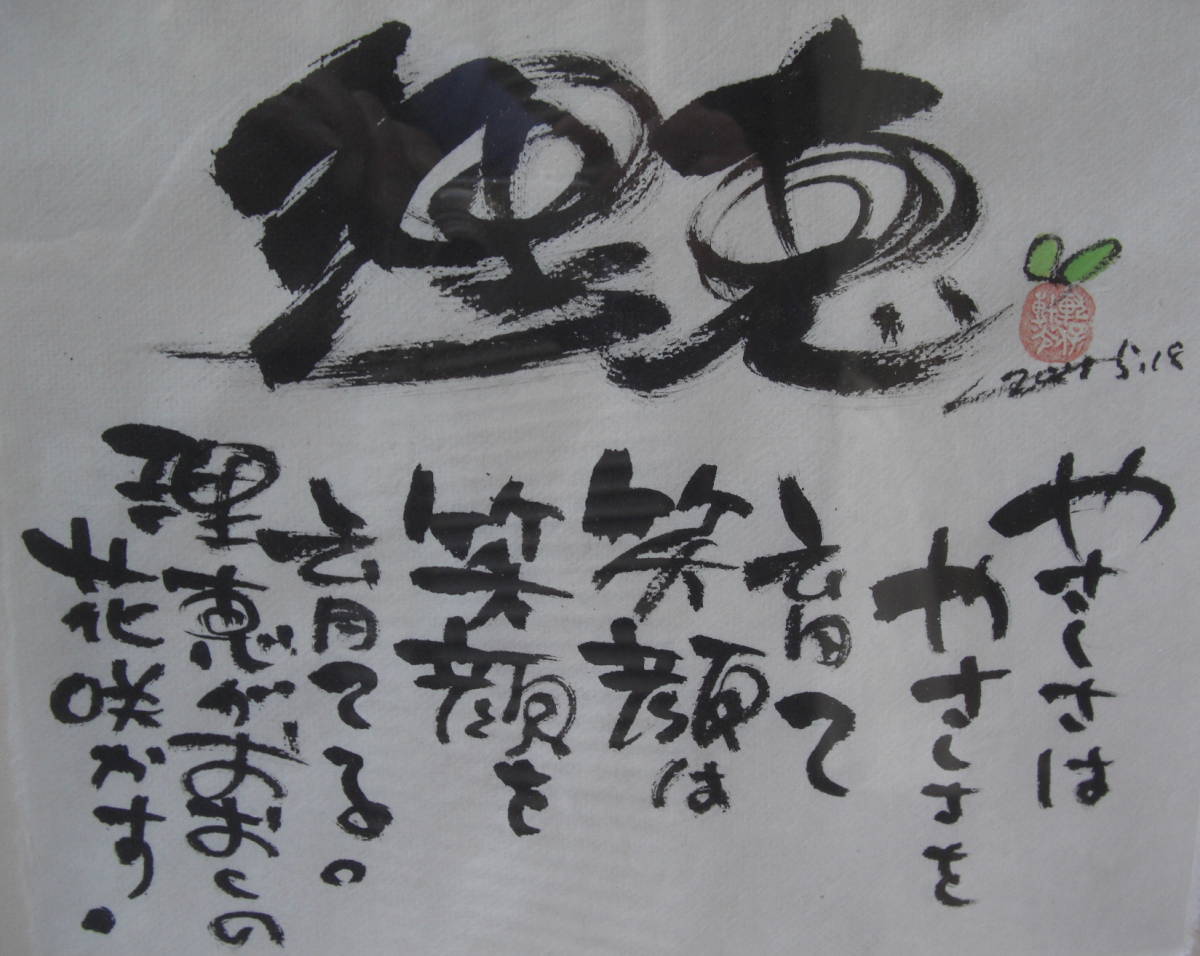 理恵
5.18
やさしさは
やさしさを
育て
笑顔は
笑顔を
育てる。
理恵がおおくの
花咲かす.